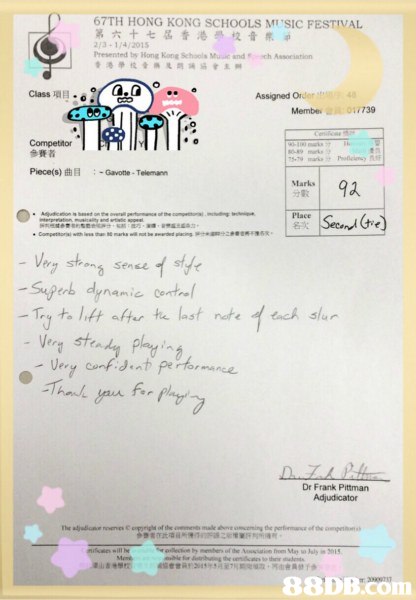 67TH HONG KONG SCHOOLS MUSIC FESTIVAL
第六十七屆香港學校音樂節
2/3 - 1/4/2015
Presented by Hong Kong Schools Music and Speech Association
香港學校音樂及朗誦協會主辦
Class 項目
Assigned Order 48
Member 017739
Competitor
參賽者
Certificate
90-100 marks
80-89 marks
75-79 marks Proficiency
Piece(s) 曲目 : ~ Gavotte - Telemann
Marks 92
分數
Place Second (tie)
名次
• Adjudication is based on the overall performance of the competitor(s), including: technique,
interpretation, musicality and artistic appeal.
• Competitor(s) with less than 80 marks will not be awarded placing.
- Very strong sense of style
- Superb dynamic control
- Try to lift after the last note of each slur
- Very steady playing
- Very confident performance
- Thank you for playing
Dr Frank Pittman
Adjudicator
The adjudicator reserves © copyright of the comments made above concerning the performance of the competitor(s)
Certificates will be for collection by members of the Association from May to July in 2015.
responsible for distributing the certificates to their students.
88DB.com